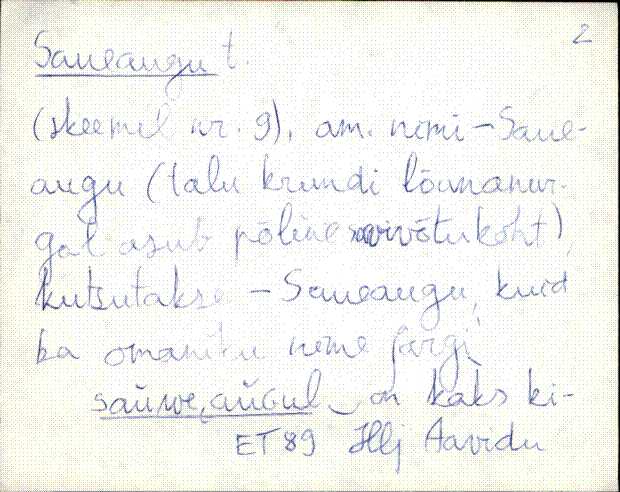 2
Saueaugu t.
(skeemil nr. 9), am. nimi – Saue-
augu (talu krundi lõunanur-
gal asub põline savivõtukoht),
kutsutakse – Saueaugu, kuid
ka omaniku nime järgi
sauwe, augul on kaks ki-
ET 89 Hlj Aavidu